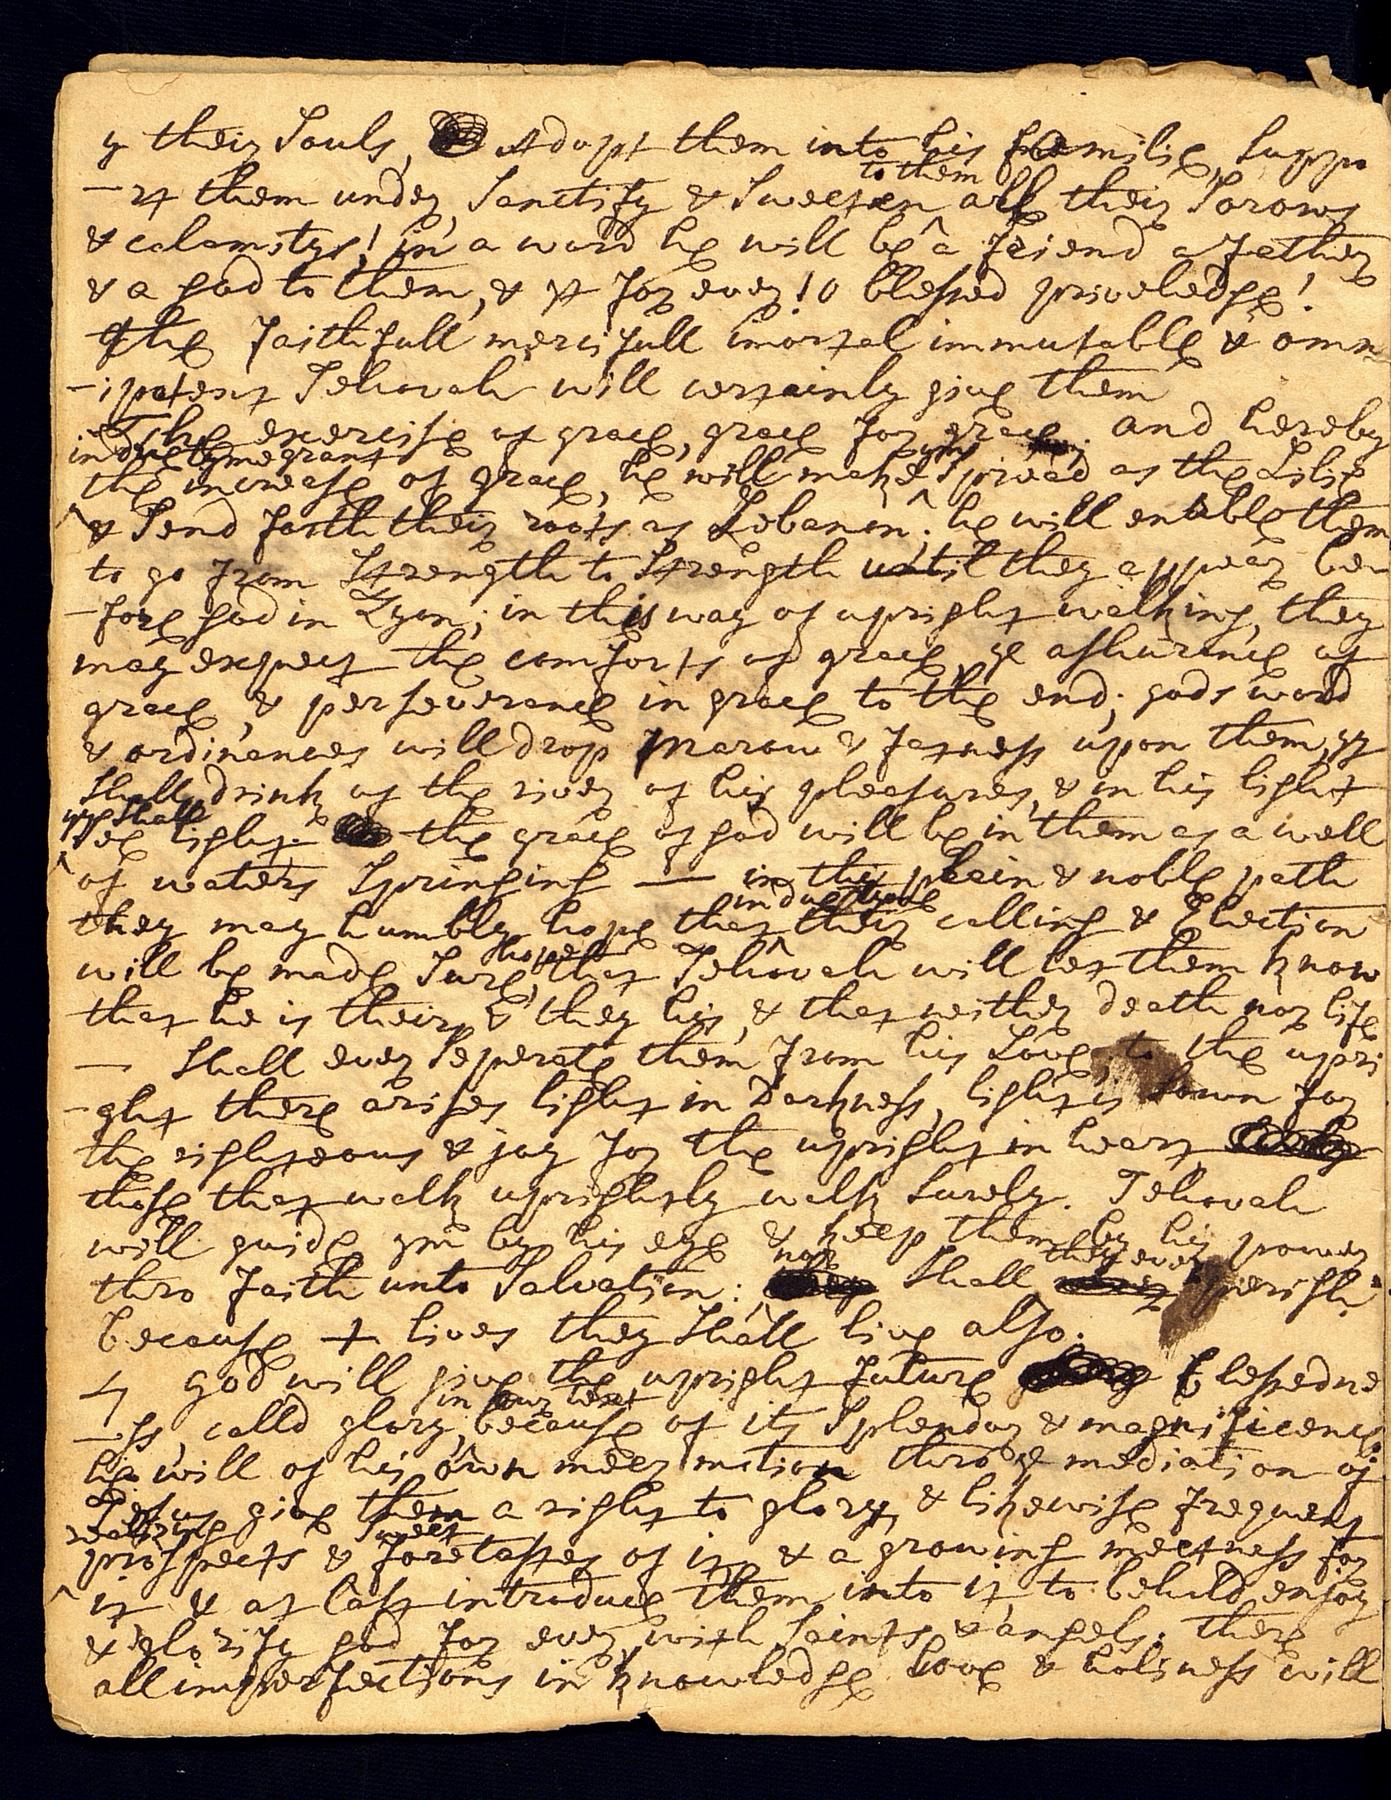 y their Souls, Adopt them into his familie, Suppo
-rt them under, Sanctify & Sweeten to them all their Sorows
& calamitys! in a word he will be a friend a father
& a god to them, & yt for ever! o blessed priveledge!
the faithfull mercifull imortal immutable & omn
-ipotent Jehovah will certainly give them
The exercise of grace, grace for grace. and hereby
in due tyme grant
the increase of grace, he will make ym Spread as the Lilie
& Send forth their roots as Lebanon; he will enable them
to go from Strength to Strength until they appear be
-fore god in Zyon; in this way of upright walking, they
may expect the comforts of grace, ye asshurance of
grace, & perseverance in grace to the end; gods word
& ordinances will drop marow & fatness upon them, yy
Shall drink of the river of his pleasures, & in his light
yy Shall
See light. the grace of god will be in them as a well
of waters Springing — in this plain & noble path
they may humbly hope that in due tyme their calling & Election
will be made Sure, that Jehovah will let them know
that he is theirs & they his, & that neither death nor life
— Shall ever Seperate them from his Love, to the upri
-ght there arises light in Darkness, light is Sown for
the righteous & joy for the upright in heart
those that walk uprightly walk Surely. Jehovah
will guide ym by his eye & keep them by his power
thro faith unto Salvation; nor Shall they ever perish,
because + lives they Shall live also.
4 god will give the upright future blessedne
-ss, calld glory in our text because of its Splendor & magnificence
he will of his own meer motion thro ye mediation of
Jesus give them a right to glory, & likewise frequent
realizing
prospects & Sweet foretastes of it, & a growing meetness for
it & at last introduce them into it, to behold enjoy
& glorify god for ever, with Saints & angels; there
all imperfections in knowledge love & holiness will